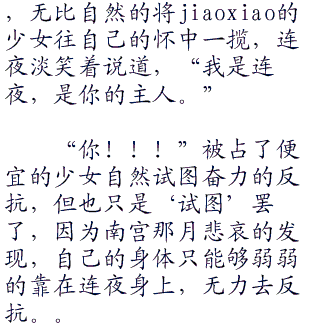 ，无比自然的将jiaoxiao的
少女往自己的怀中一揽，连
夜淡笑着说道，“我是连
夜，是你的主人。”
“你！！！”被占了便
宜的少女自然试图奋力的反
抗，但也只是‘试图’罢
了，因为南宫那月悲哀的发
现，自己的身体只能够弱弱
的靠在连夜身上，无力去反
抗。。